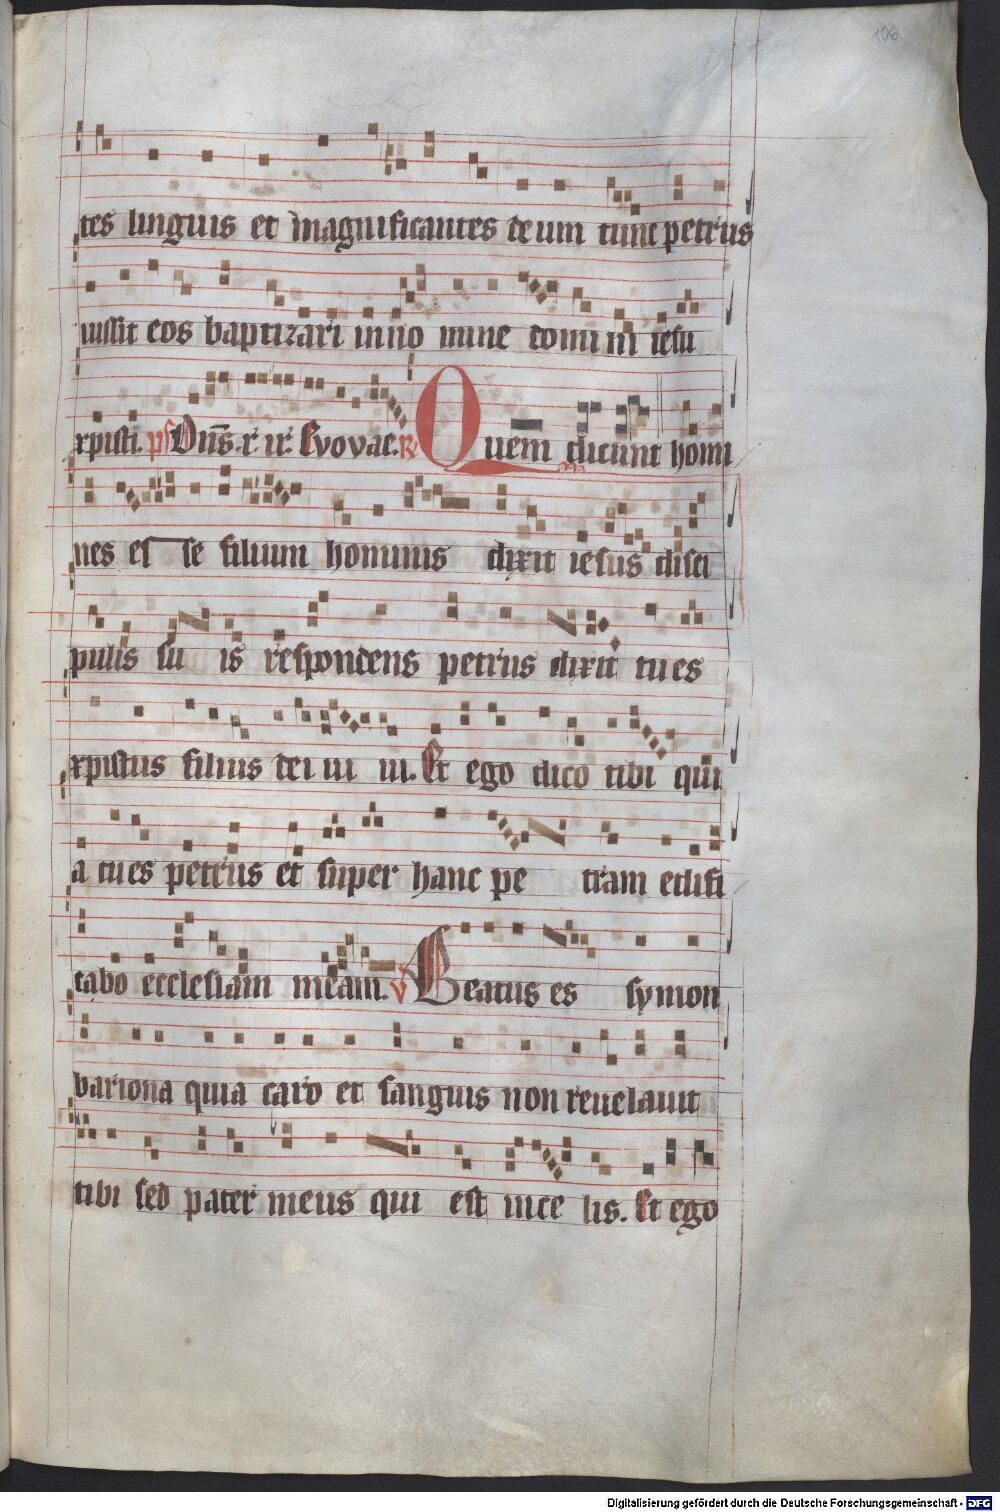 106
tes linguis et magnificantes deum tunc petrus
iussit eos baptizari in no mine domi ni iesu
xpisti. ps Dn̄s. Evovae. R Quem dicunt homi
nes es se filium hominis dixit iesus disci
pulis su is respondens petrus dixit tu es
xpistus filius dei ui ui. Et ego dico tibi qui
a tu es petrus et super hanc pe tram edifi
cabo ecclesiam meam. V Beatus es symon
bariona quia caro et sanguis non reuelauit
tibi sed pater meus qui est in ce lis. Et ego
Digitalisierung gefördert durch die Deutsche Forschungsgemeinschaft - DFG